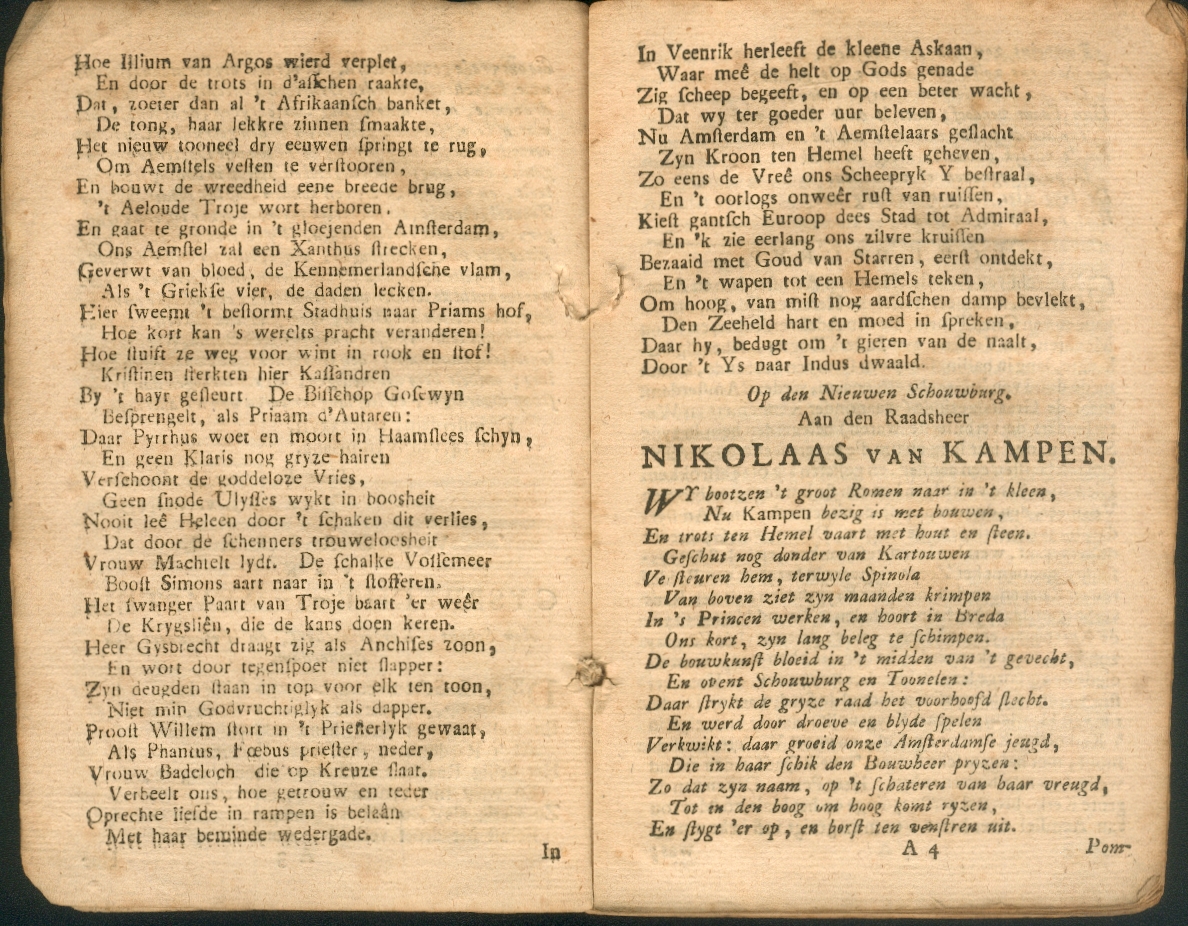 Hoe Illium van Argos wierd verplet,
En door de trots in d'asschen raakte,
Dat, zoeter dan al 't Afrikaansch banket,
De tong, haar lekkre zinnen smaakte,
Het nieuw tooneel dry eeuwen springt te rug,
Om Aemstels vesten te verstooren,
En bouwt de wreedheid eene breede brug,
't Aeloude Troje wort herboren.
En gaat te gronde in 't gloejenden Amsterdam,
Ons Aemstel zal een Xanthus strecken,
Geverwt van bloed, de Kennemerlandsche vlam,
Als 't Griekse vier, de daden lecken.
Hier sweemt 't bestormt Stadhuis naar Priams hof,
Hoe kort kan 's werelts pracht veranderen!
Hoe stuift ze weg voor wint in rook en stof!
Kristinen sterkten hier Kassandren
By 't hayr gesleurt. De Bisschop Gosewyn
Besprengelt, als Priaam d'Autaren:
Daar Pyrrhus woet en moort in Haamstees schyn,
En geen Klaris nog gryze hairen
Verschoont de goddeloze Vries,
Geen snode Ulysses wykt in boosheit
Nooit leê Heleen door 't schaken dit verlies,
Dat door de schenners trouweloosheit
Vrouw Machtelt lydt. De schalke Vossemeer
Boost Simons aart naar in 't stofferen.
Het swanger Paart van Troje baart 'er weêr
De Krygsliên, die de kans doen keren.
Heer Gysbrecht draagt zig als Anchises zoon,
En wort door tegenspoet niet slapper:
Zyn deugden staan in top voor elk ten toon,
Niet min Godvruchtiglyk als dapper.
Proost Willem stort in 't Priesterlyk gewaat,
Als Phantus, Fœbus priester, neder,
Vrouw Badeloch die op Kreuze slaat.
Verbeelt ons, hoe getrouw en teder
Oprechte liefde in rampen is belaân
Met haar beminde wedergade.
In
In Veenrik herleeft de kleene Askaan,
Waar meê de helt op Gods genade
Zig scheep begeeft, en op een beter wacht,
Dat wy ter goeder uur beleven,
Nu Amsterdam en 't Aemstelaars geslacht
Zyn Kroon ten Hemel heeft geheven,
Zo eens de Vreê ons Scheepryk Y bestraal,
En 't oorlogs onweêr rust van ruissen,
Kiest gantsch Euroop dees Stad tot Admiraal,
En 'k zie eerlang ons zilvre kruissen
Bezaaid met Goud van Starren, eerst ontdekt,
En 't wapen tot een Hemels teken,
Om hoog, van mist nog aardschen damp bevlekt,
Den Zeeheld hart en moed in spreken,
Daar hy, bedugt om 't gieren van de naalt,
Door 't Ys naar Indus dwaald.
Op den Nieuwen Schouwburg.
Aan den Raadsheer
NIKOLAAS VAN KAMPEN.
WY bootzen 't groot Romen naar in 't kleen,
Nu Kampen bezig is met bouwen,
En trots ten Hemel vaart met hout en steen.
Geschut nog donder van Kartouwen
Ve steuren hem, terwyle Spinola
Van boven ziet zyn maanden krimpen
In 's Princen werken, en hoort in Breda
Ons kort, zyn lang beleg te schimpen.
De bouwkunst bloeid in 't midden van 't gevecht,
En opent Schouwburg en Toonelen:
Daar strykt de gryze raad het voorhoofd slecht.
En werd door droeve en blyde spelen
Verkwikt: daar groeid onze Amsterdamse jeugd,
Die in haar schik den Bouwheer pryzen:
Zo dat zyn naam, op 't schateren van haar vreugd,
Tot in den boog om hoog komt ryzen,
En stygt 'er op, en borst ten venstren uit.
A 4
Pom-